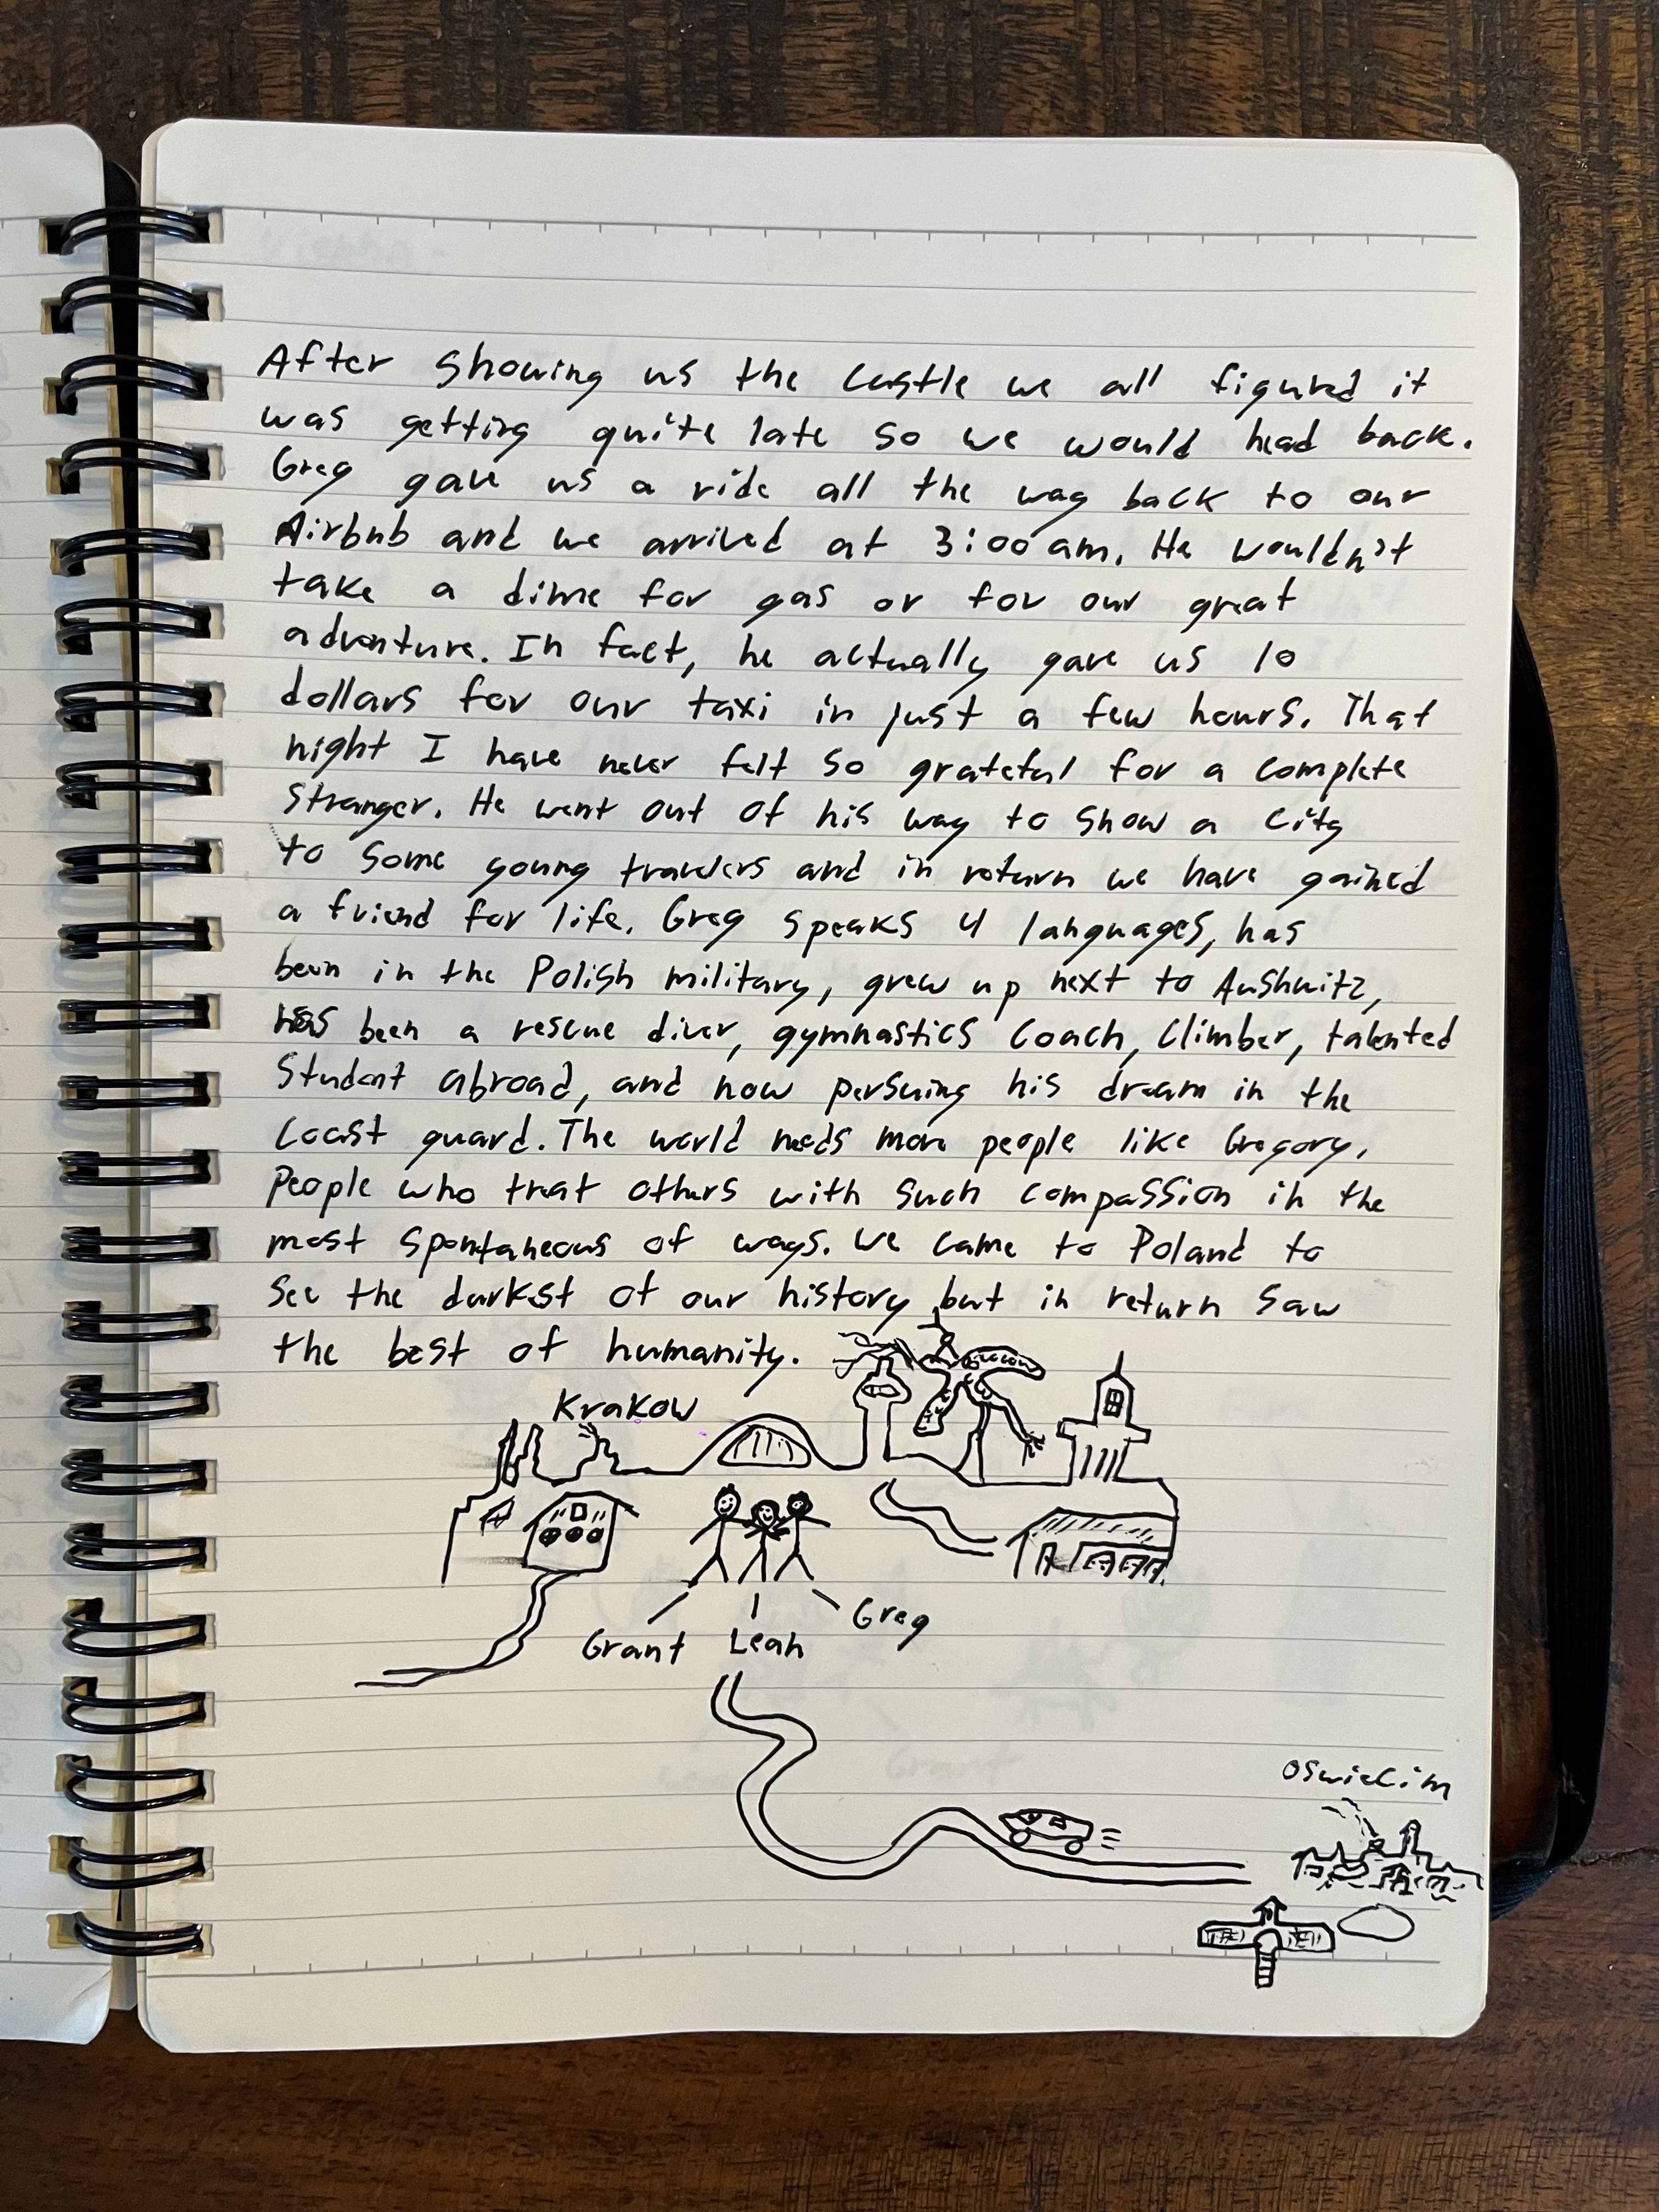 After showing us the castle we all figured it
was getting quite late so we would head back.
Greg gave us a ride all the way back to our
Airbnb and we arrived at 3:00 am. He wouldn't
take a dime for gas or for our great
adventure. In fact, he actually gave us 10
dollars for our taxi in just a few hours. That
night I have never felt so grateful for a complete
stranger. He went out of his way to show a city
to some young travelers and in return we have gained
a friend for life. Greg speaks 4 languages, has
been in the Polish military, grew up next to Aushwitz,
has been a rescue diver, gymnastics coach, climber, talented
student abroad, and now persuing his dream in the
coast guard. The world needs more people like Gregory.
People who treat others with such compassion in the
most spontaneous of ways. We came to Poland to
see the darkest of our history but in return saw
the best of humanity.
Krakow
Greg
Grant Leah
Oswiecim